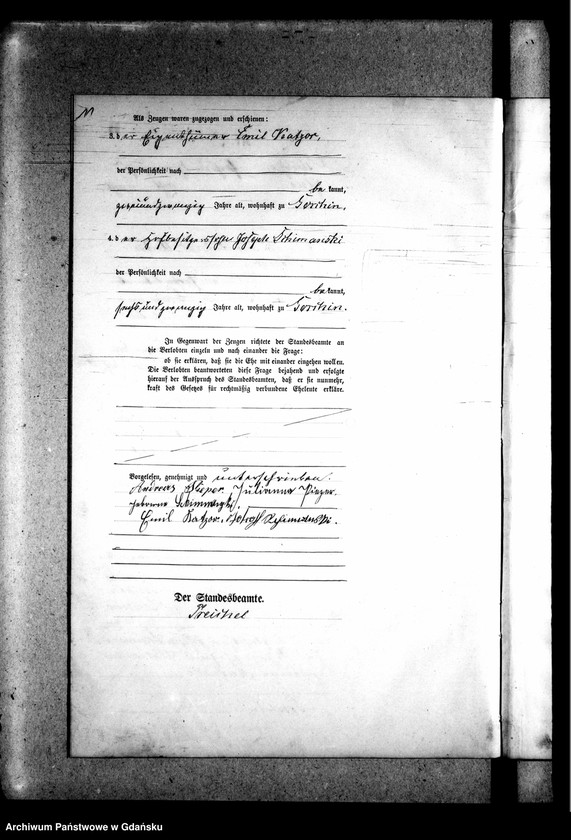 Als Zeugen waren zugezogen und erschienen:
3. der Eigenthümer Emil Katzor,
der Persönlichkeit nach
bekannt,
zweiundzwanzig Jahre alt, wohnhaft zu
4. der Hofbesitzerssohn Joseph Schimanski
der Persönlichkeit nach
bekannt,
sechsundzwanzig Jahre alt, wohnhaft zu
In Gegenwart der Zeugen richtete der Standesbeamte an
die Verlobten einzeln und nach einander die Frage:
ob sie erklären, daß sie die Ehe mit einander eingehen wollen.
Die Verlobten beantworteten diese Frage bejahend und erfolgte
hierauf der Ausspruch des Standesbeamten, daß er sie nunmehr,
kraft des Gesetzes für rechtmäßig verbundene Eheleute erkläre.
Vorgelesen, genehmigt und unterschrieben.
Andreas Julianna
geborene
Emil Katzor. Joseph
Der Standesbeamte.
Archiwum Państwowe w Gdańsku